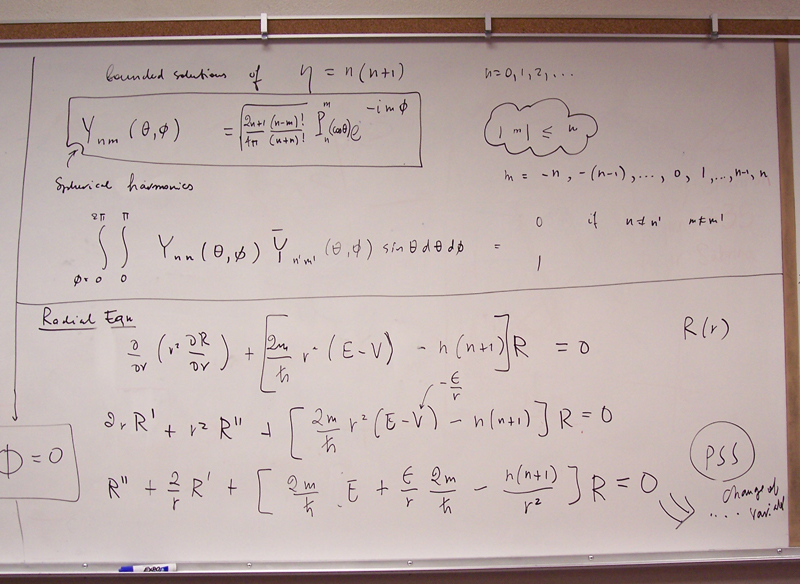 bounded solutions of η = n(n+1) n=0,1,2,...
Y_nm (θ,φ) = √(2n+1/4π (n-m)!/(n+m)!) P_n^m (cosθ) e^{-imφ}
|m| ≤ n
m = -n, -(n-1), ..., 0, 1, ..., n-1, n
Spherical harmonics
∫_{φ=0}^{2π} ∫_0^π Y_nm (θ,φ) Ȳ_n'm' (θ,φ) sinθ dθ dφ = 0 if n≠n' m≠m'
1
Radial Eqn
∂/∂r (r² ∂R/∂r) + [2m/ℏ r² (E-V) - n(n+1)] R = 0 R(r)
-ε/r
2rR' + r²R'' + [2m/ℏ r² (E-V) - n(n+1)] R = 0
Φ = 0
R'' + 2/r R' + [2m/ℏ . E + ε/r 2m/ℏ - n(n+1)/r²] R = 0
PSS
change of
.... variable
EXPO